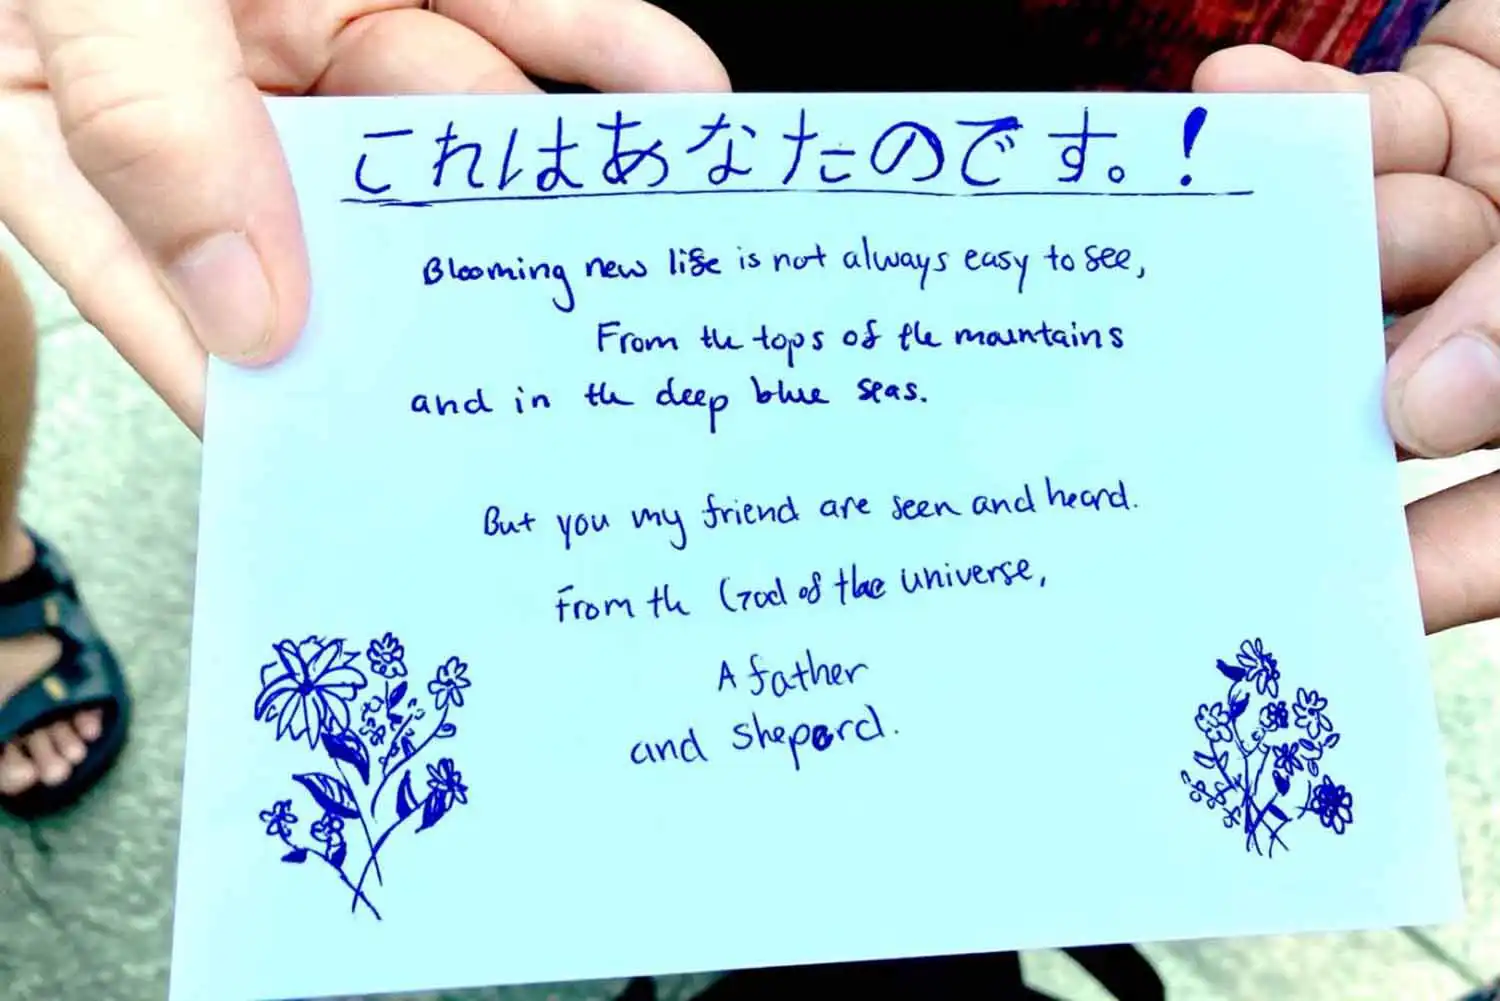 これはあなたのです。!
Blooming new life is not always easy to see,
From the tops of the mountains
and in the deep blue seas.
But you my friend are seen and heard.
From the God of the universe,
A father
and sheperd.